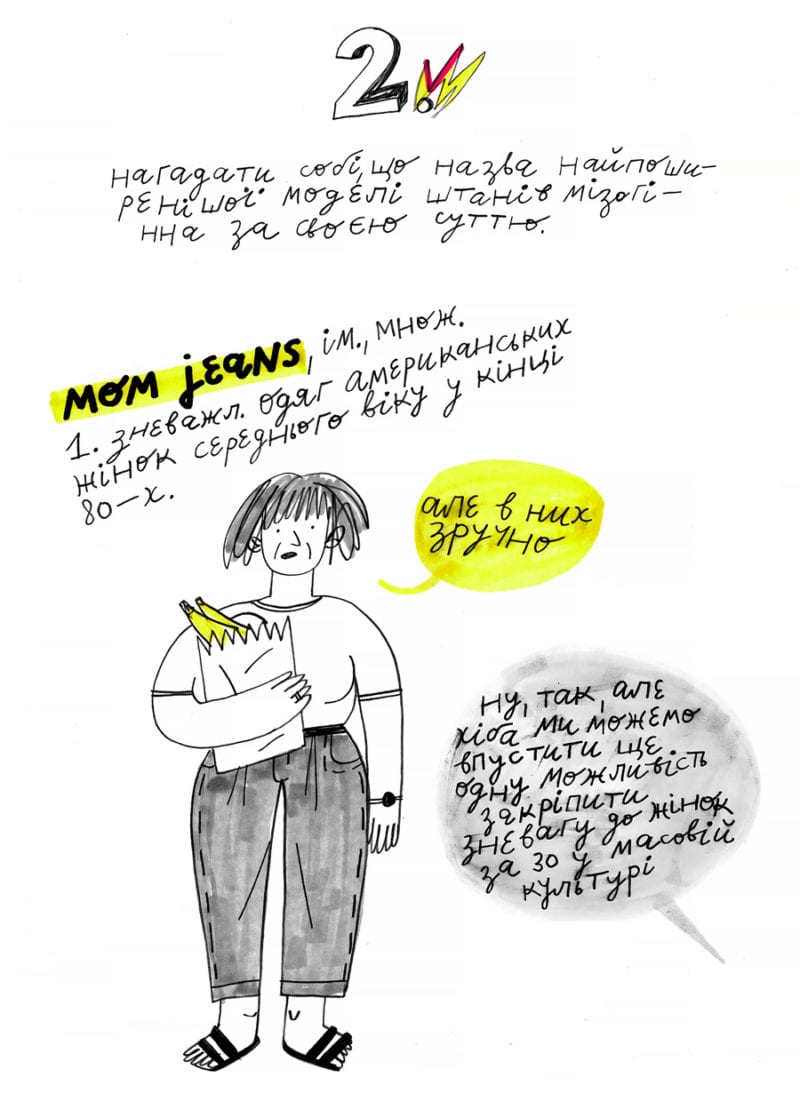 2.
нагадати собі, що назва найпоши-
ренішої моделі штанів мізогі-
нна за своєю суттю.
mom jeans, ім., множ.
1. зневажл. одяг американських
жінок середнього віку у кінці
80-х.
але в них
зручно
ну, так, але
хіба ми можемо
впустити ще
одну можливість
закріпити
зневагу до жінок
за 30 у масовій
культурі